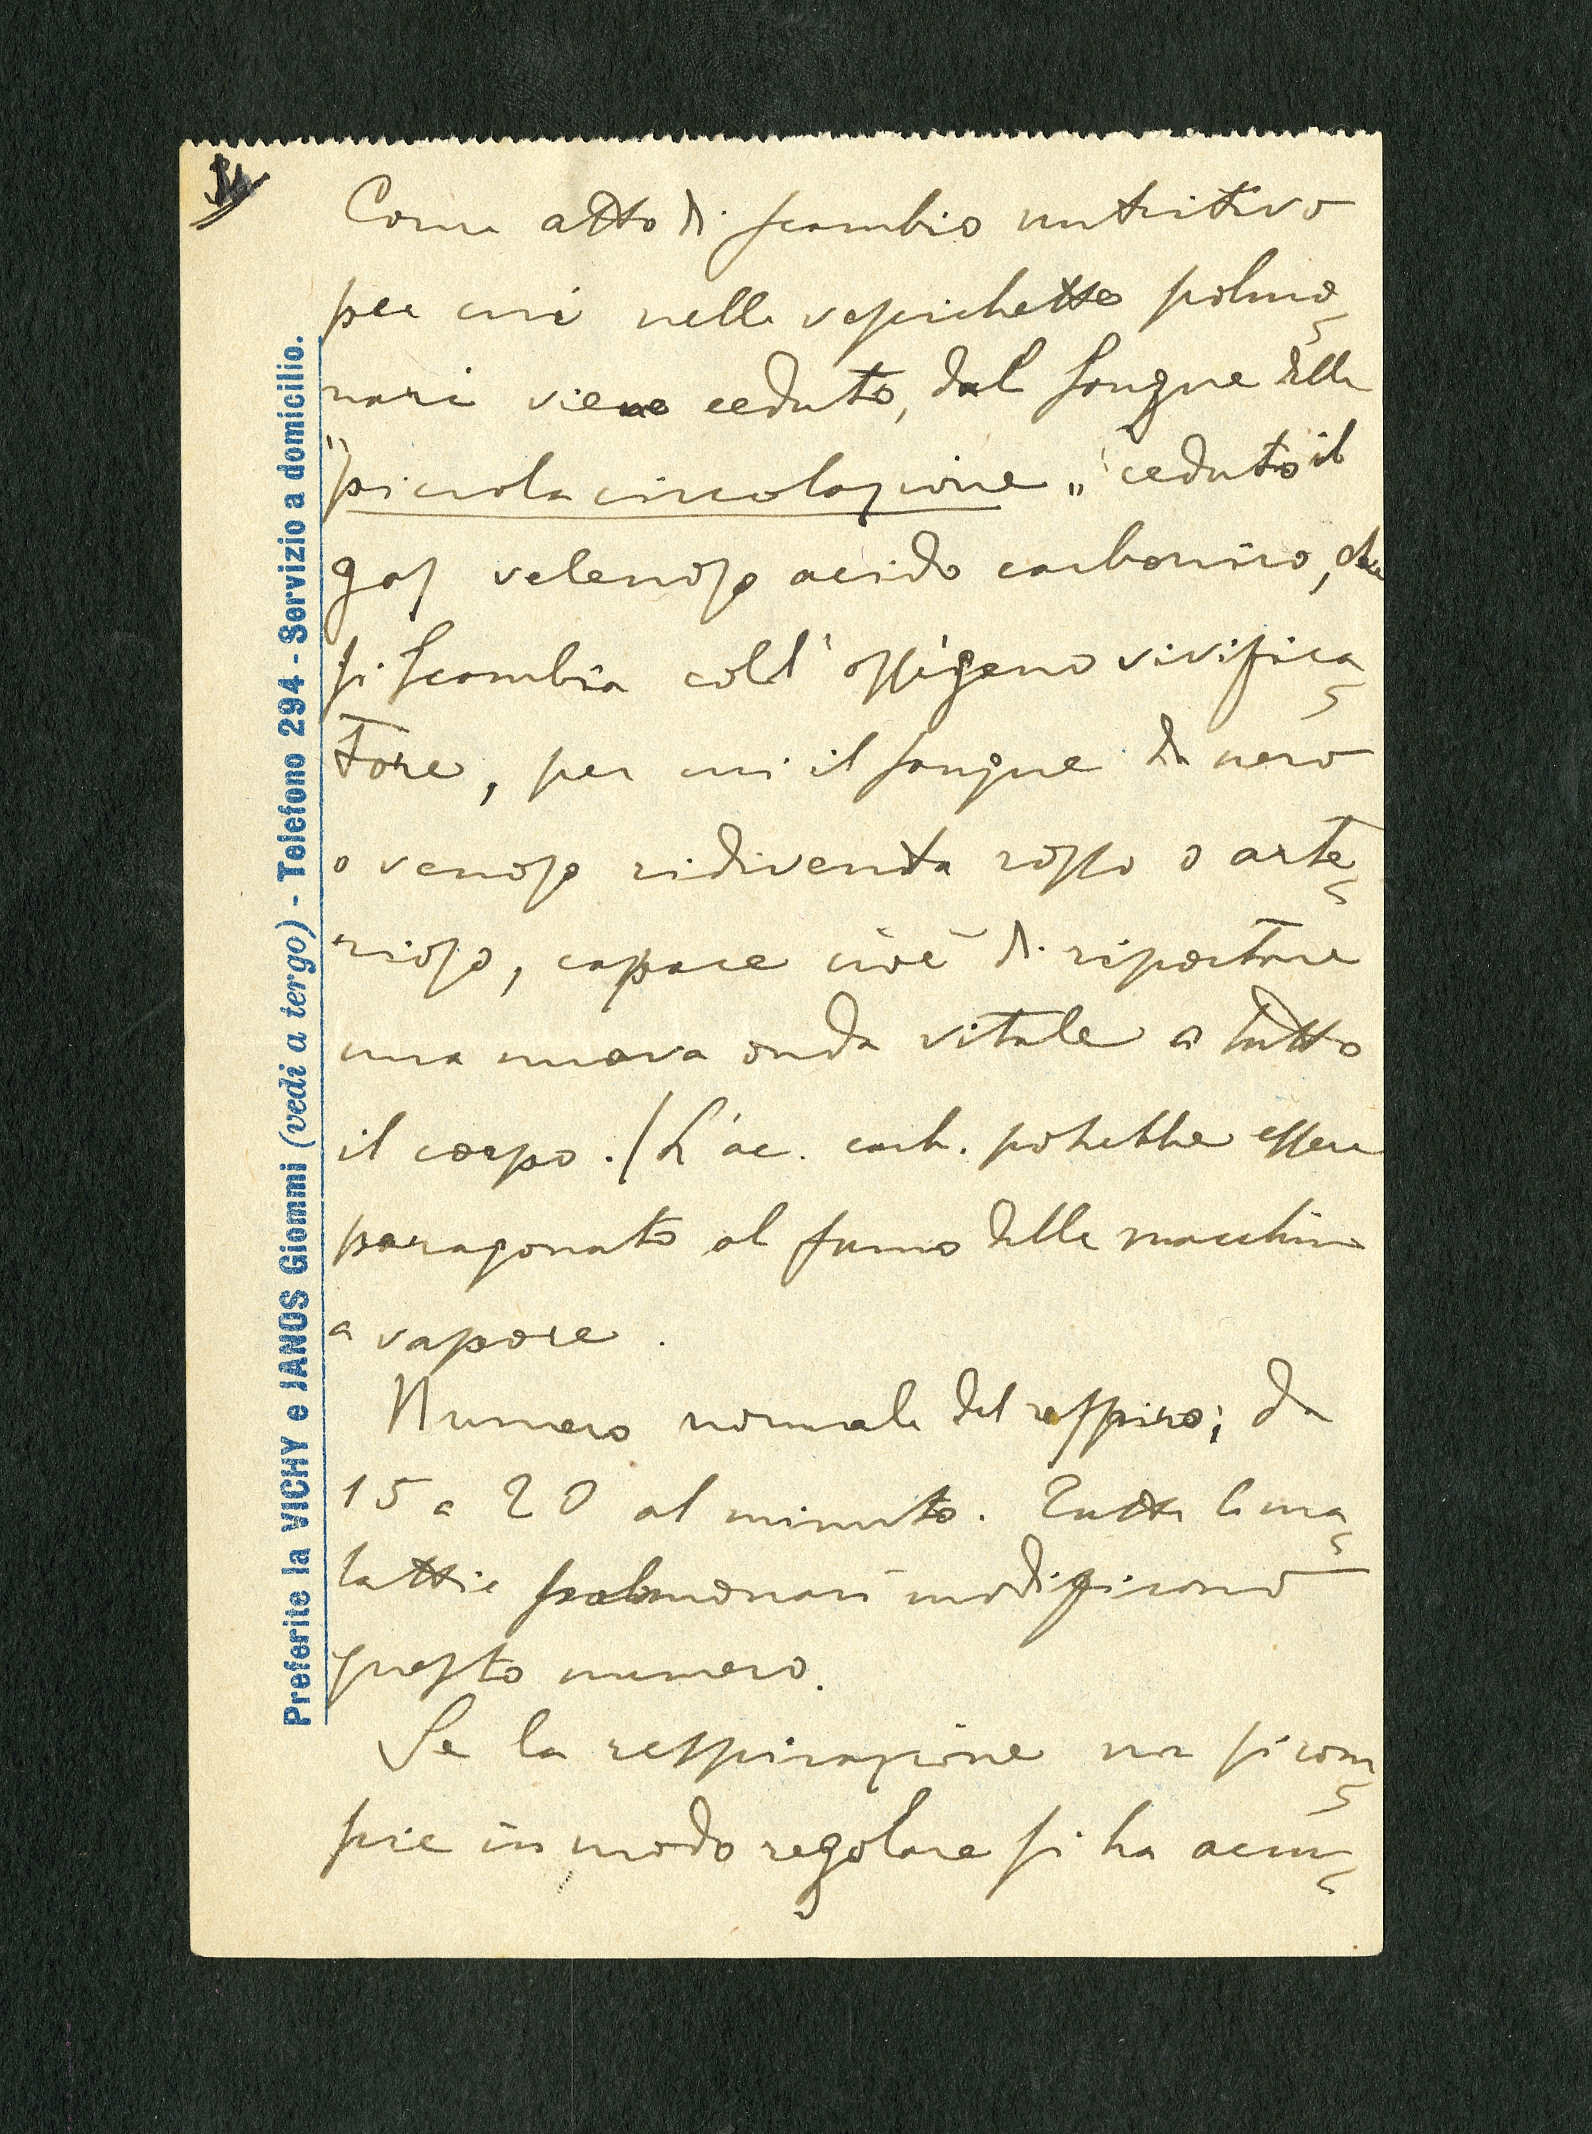 Come atto di scambio nutritivo
per cui nelle vescichette polmo-
nari viene ceduto, dal sangue della
"piccola circolazione" ceduto il
gas velenoso acido carbonico, che
si scambia coll'ossigeno vivifica-
tore, per cui il sangue da nero
o venoso ridiventa rosso o arte-
rioso, capace cioè di riportare
una nuova onda vitale a tutto
il corpo. / L'ac. carb. potrebbe essere
paragonato al fumo delle macchine
a vapore.
Numero normale del respiro; da
15 a 20 al minuto. Tutte le ma-
lattie polmonari modificano
questo numero.
Se la respirazione non si com-
pie in modo regolare si ha acu-
Preferite la VICHY e IANOS Giommi (vedi a tergo) - Telefono 294 - Servizio a domicilio.